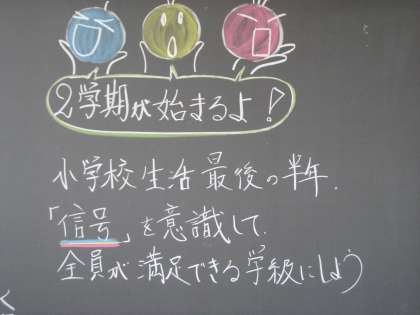 2学期が始まるよ!
小学校生活最後の半年.
「信号」を意識して.
全員が満足できる学級にしよう
く